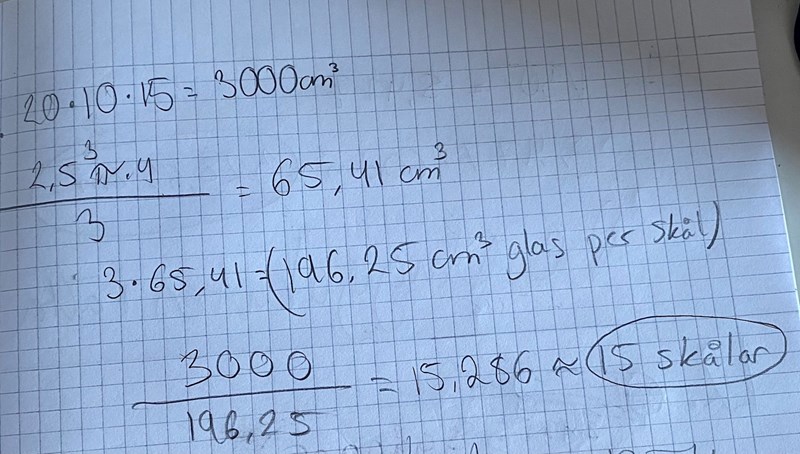 20·10·15 = 3000cm³
2,5³π·4 / 3 = 65,41 cm³
3·65,41 = (196,25 cm³ glas per skål)
3000 / 196,25 = 15,286 ≈ 15 skålar